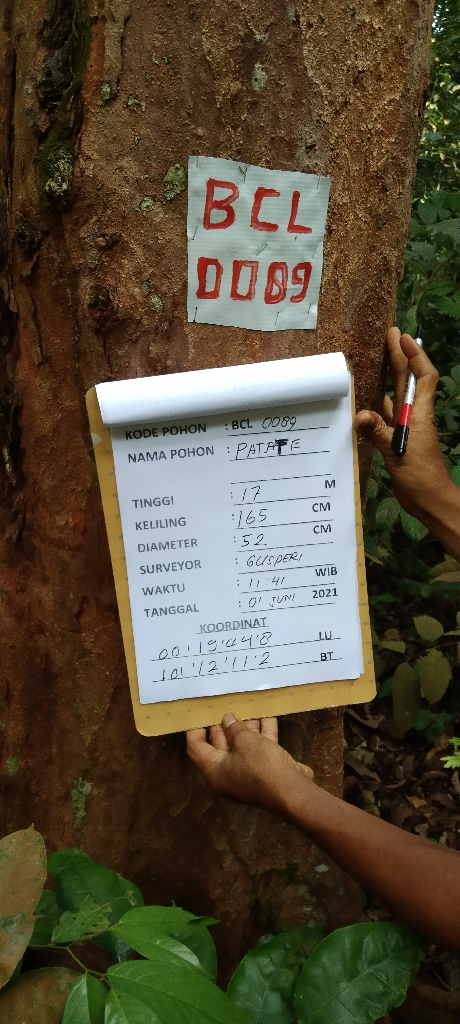 BCL
0089
KODE POHON : BCL 0089
NAMA POHON : PATATE
TINGGI : 17 M
KELILING : 165 CM
DIAMETER : 52 CM
SURVEYOR : GUSPERI
WAKTU : 11:41 WIB
TANGGAL : 01 JUNI 2021
KOORDINAT
00'19'44'8 LU
101'12'11'2 BT